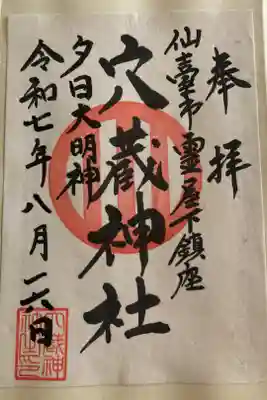 奉拝
仙臺市霊屋下鎮座
穴蔵神社
夕日大明神
令和七年八月一六日
穴蔵神社之印